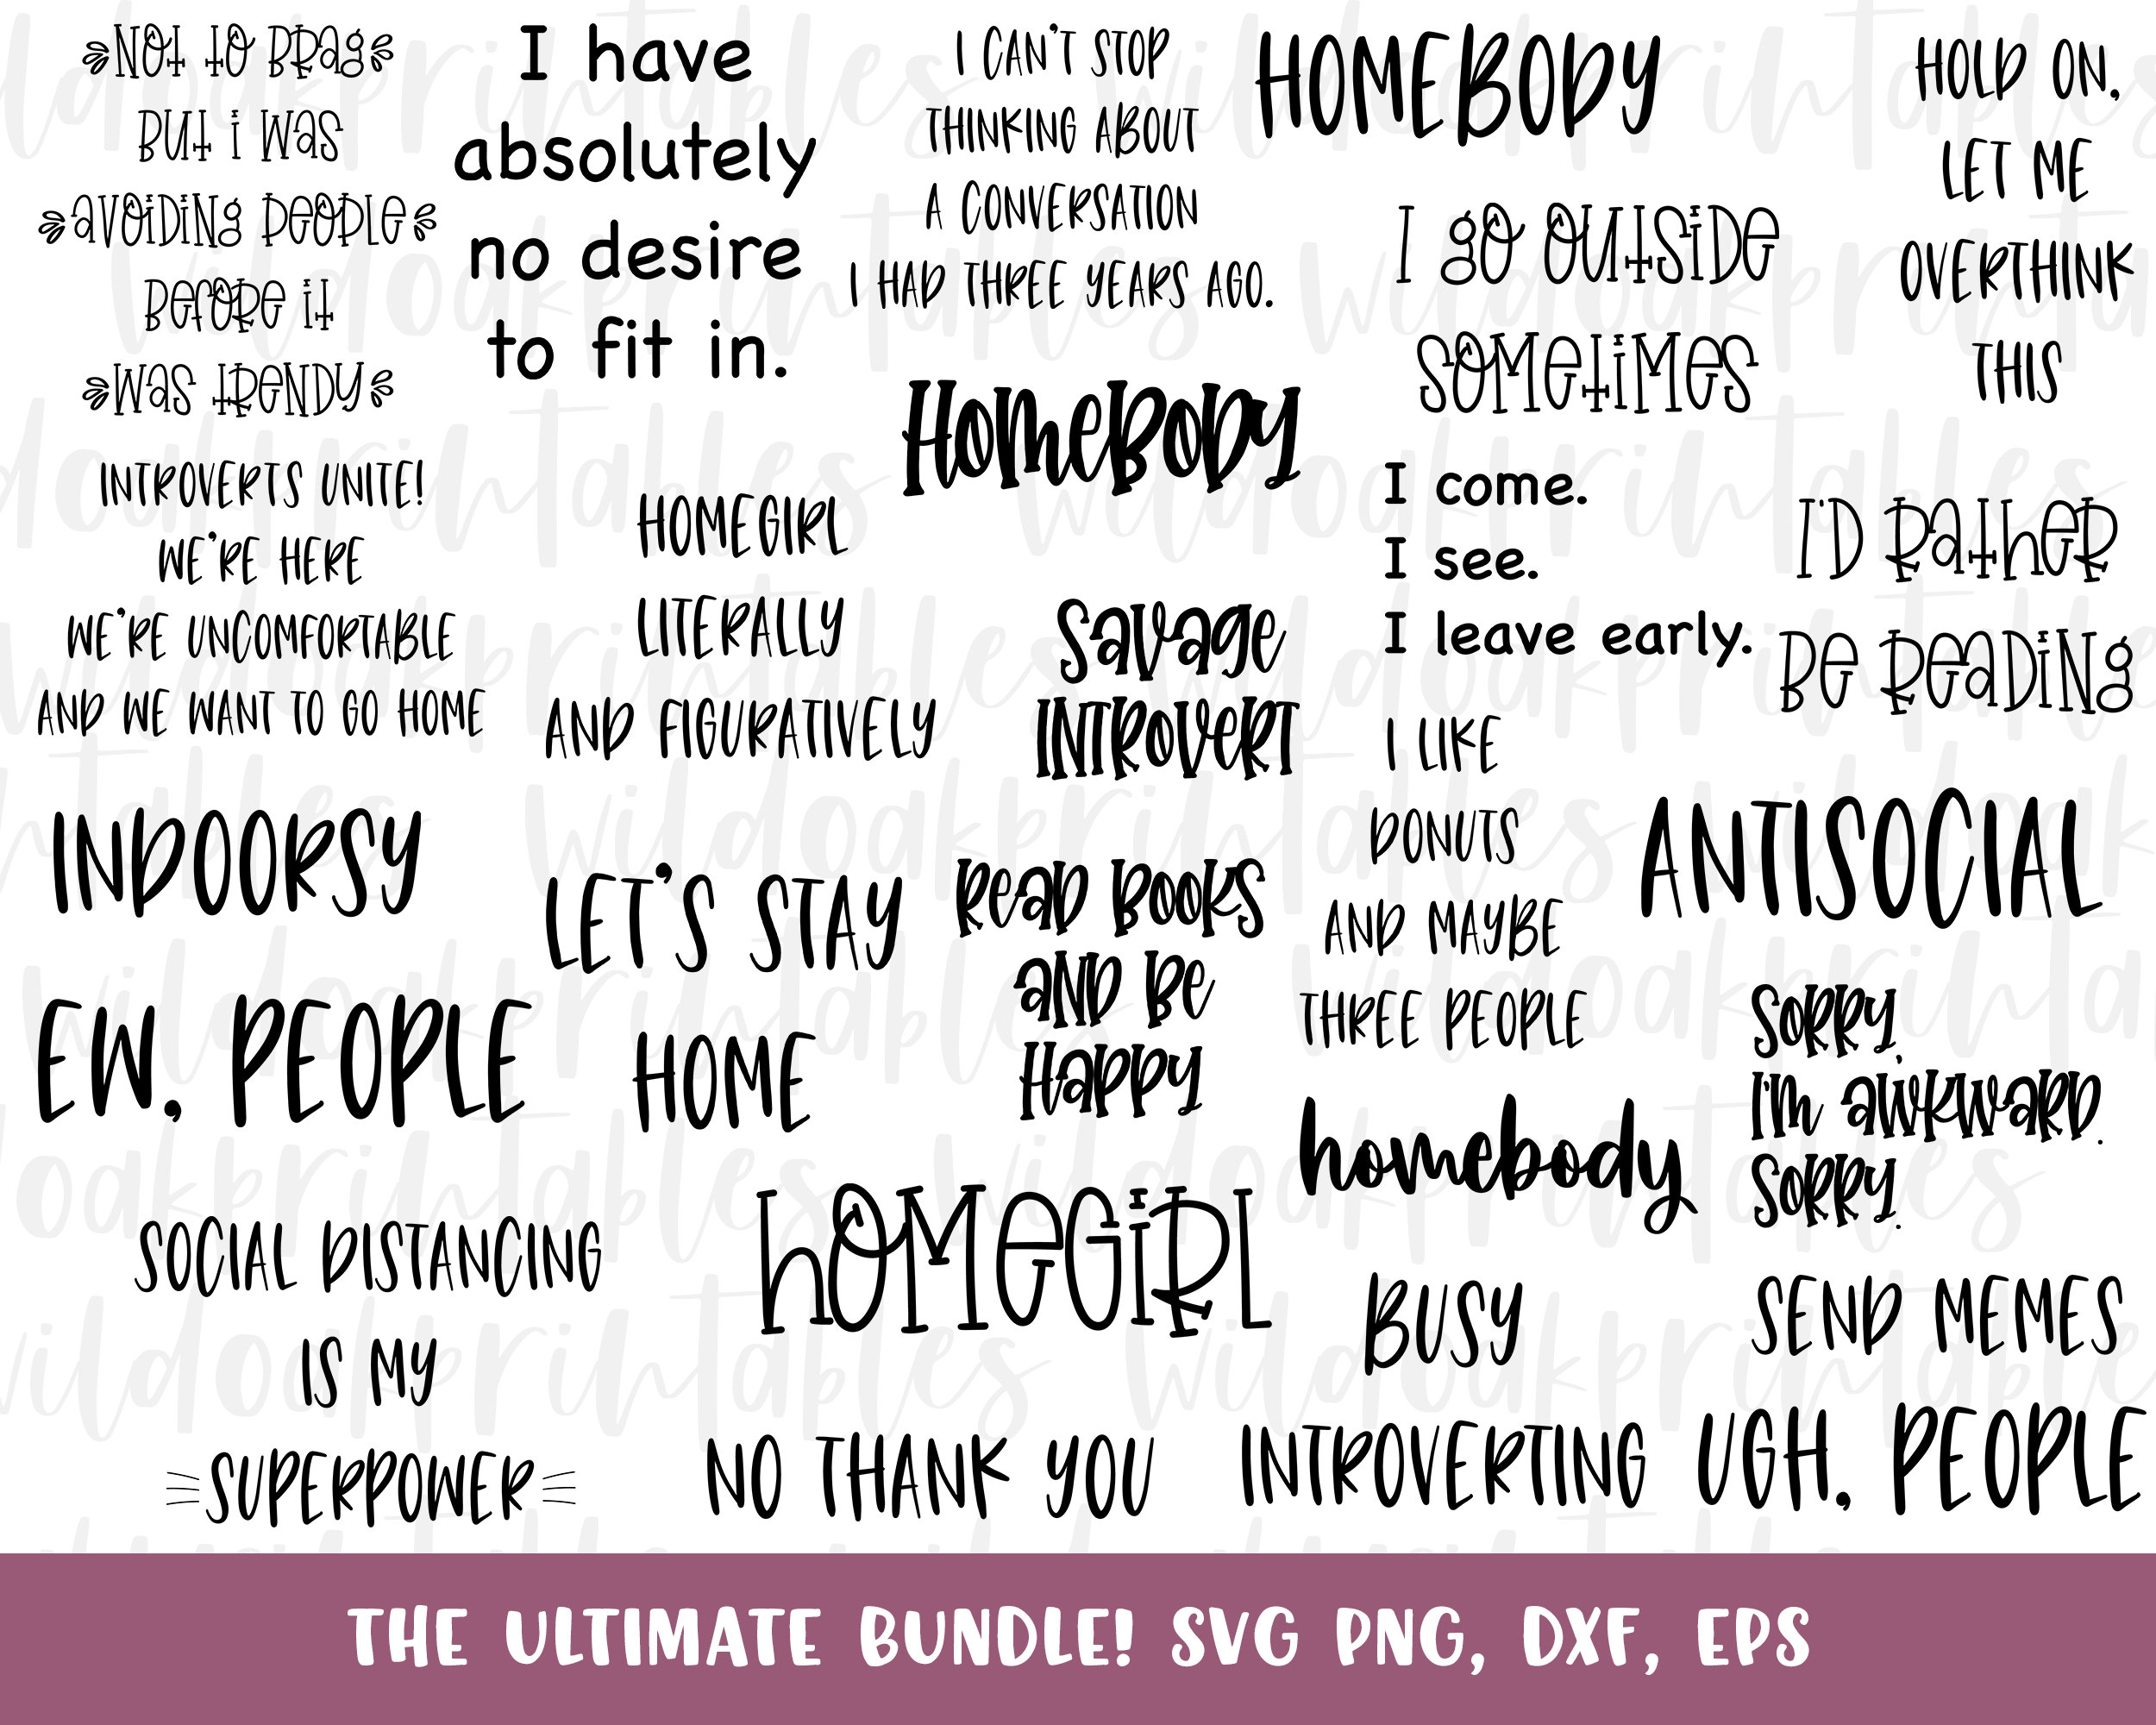 NOT TO BRAG
BUT I WAS
AVOIDING PEOPLE
BEFORE IT
WAS TRENDY
I have
absolutely
no desire
to fit in.
I CAN'T STOP
THINKING ABOUT
A CONVERSATION
I HAD THREE YEARS AGO.
HOMEBODY
HOLD ON,
LET ME
OVERTHINK
THIS
I GO OUTSIDE
SOMETIMES
HOMEBODY
INTROVERTS UNITE!
WE'RE HERE
WE'RE UNCOMFORTABLE
AND WE WANT TO GO HOME
HOMEGIRL
LITERALLY
AND FIGURATIVELY
SAVAGE
INTROVERT
I come.
I see.
I leave early.
I'D RATHER
BE READING
INDOORSY
LET'S STAY
HOME
READ BOOKS
AND BE
HAPPY
I LIKE
DONUTS
AND MAYBE
THREE PEOPLE
ANTISOCIAL
EW, PEOPLE
homebody
SORRY,
I'M AWKWARD.
SORRY.
SOCIAL DISTANCING
IS MY
SUPERPOWER
HOMEGIRL
BUSY
INTROVERTING
SEND MEMES
NO THANK YOU
UGH, PEOPLE
THE ULTIMATE BUNDLE! SVG PNG, DXF, EPS
wildoakprintables